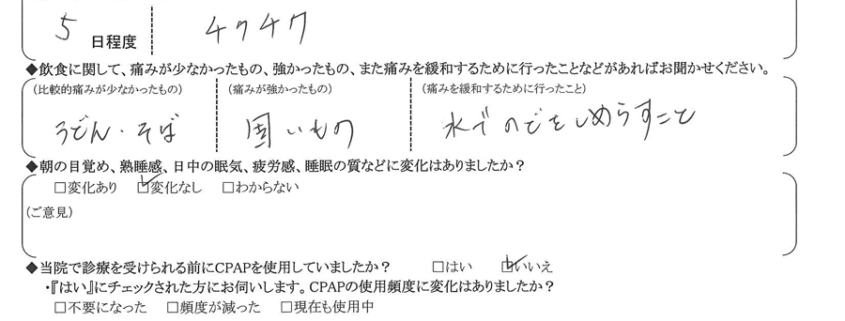 5 日程度 チクチク
◆飲食に関して、痛みが少なかったもの、強かったもの、また痛みを緩和するために行ったことなどがあればお聞かせください。
(比較的痛みが少なかったもの) (痛みが強かったもの) (痛みを緩和するために行ったこと)
うどん・そば 固いもの 水でのどをしめらすこと
◆朝の目覚め、熟睡感、日中の眠気、疲労感、睡眠の質などに変化はありましたか?
□変化あり ☑変化なし □わからない
(ご意見)
◆当院で診療を受けられる前にCPAPを使用していましたか? □はい ☑いいえ
・『はい』にチェックされた方にお伺いします。CPAPの使用頻度に変化はありましたか?
□不要になった □頻度が減った □現在も使用中